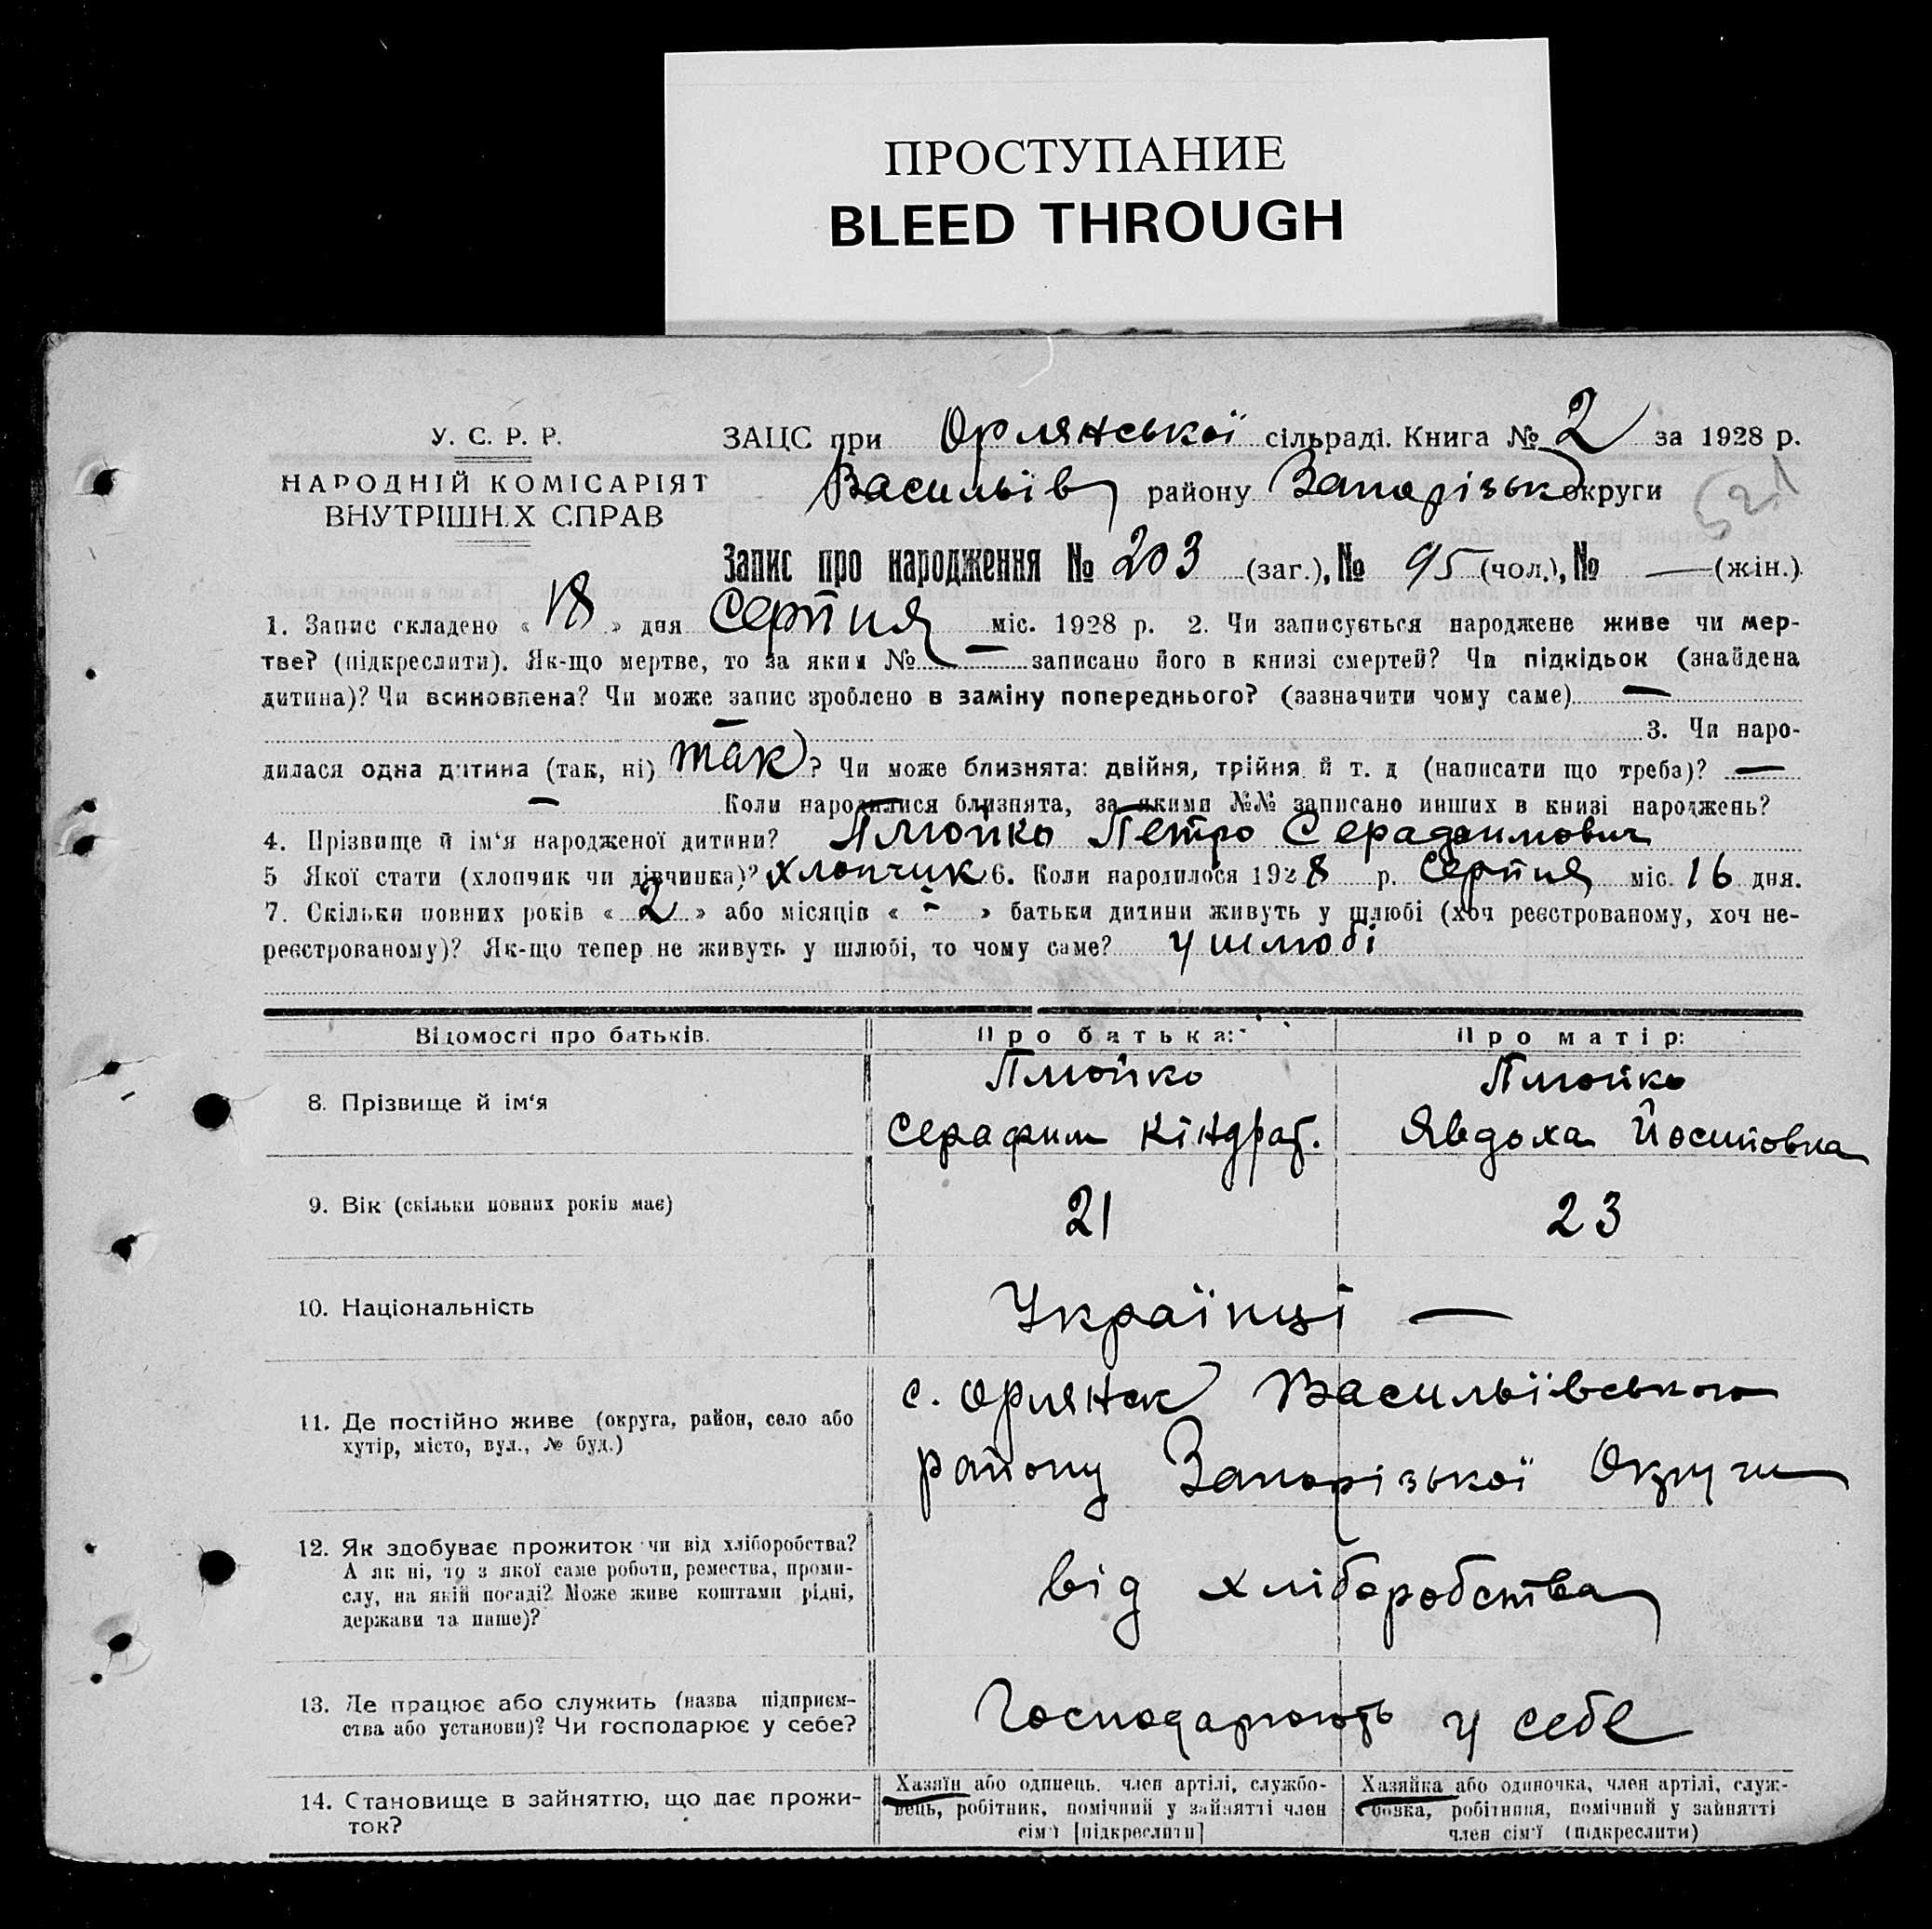 ПРОСТУПАНИЕ
BLEED THROUGH
У. С. Р. Р.
НАРОДНІЙ КОМІСАРІЯТ
ВНУТРІШН.Х СПРАВ
ЗАЦС при Орлянської сільраді. Книга № 2 за 1928 р.
Васильїв району Запорізьк округи
521
Запис про народження № 203 (заг.), № 95 (чол.), № — (жін.)
1. Запис складено « 18 » дня Серпня міс. 1928 р. 2. Чи записується народжене живе чи мер-
тве? (підкреслити). Як-що мертве, то за яким № — записано його в книзі смертей? Чи підкідьок (знайдена
дитина)? Чи всиновлена? Чи може запис зроблено в заміну попереднього? (зазначити чому саме) —
— 3. Чи наро-
дилася одна дитина (так, ні) так ? Чи може близнята: двійня, трійня й т. д (написати що треба)? —
— Коли народилися близнята, за якими №№ записано инших в книзі народжень? —
4. Прізвище й ім‘я народженої дитини? Плюйко Петро Серадоимович
5 Якої стати (хлопчик чи дівчинка)? хлопчик 6. Коли народилося 1928 р. Серпня міс. 16 дня.
7. Скільки повних років « 2 » або місяців « - » батьки дитини живуть у шлюбі (хоч реєстрованому, хоч не-
реєстрованому)? Як-що тепер не живуть у шлюбі, то чому саме? у шлюбі
Відомості про батьків.
Про батька:
Про матір:
8. Прізвище й ім‘я
Плюйко
Серафим Кіндрат.
Плюйко
Явдоха Йосиповна
9. Вік (скільки повних років має)
21
23
10. Національність
Українці —
11. Де постійно живе (округа, район, село або
хутір, місто, вул., № буд.)
с. Орлянск Васильївського
району Запорізької Округи
12. Як здобуває прожиток чи від хліборобства?
А як ні, то з якої саме роботи, ремества, проми-
слу, на якій посаді? Може живе коштами рідні,
держави та инше)?
від хліборобства
13. Де працює або служить (назва підприєм-
ства або установи)? Чи господарює у себе?
Господарюють у себе
14. Становище в зайняттю, що дає прожи-
ток?
Хазяїн або одинець, член артілі, службо-
вець, робітник, помічний у зайнятті член
сім‘ї [підкреслити]
Хазяйка або одиночка, член артілі, служ-
бовка, робітниця, помічний у зайнятті
член сім‘ї (підкреслити)